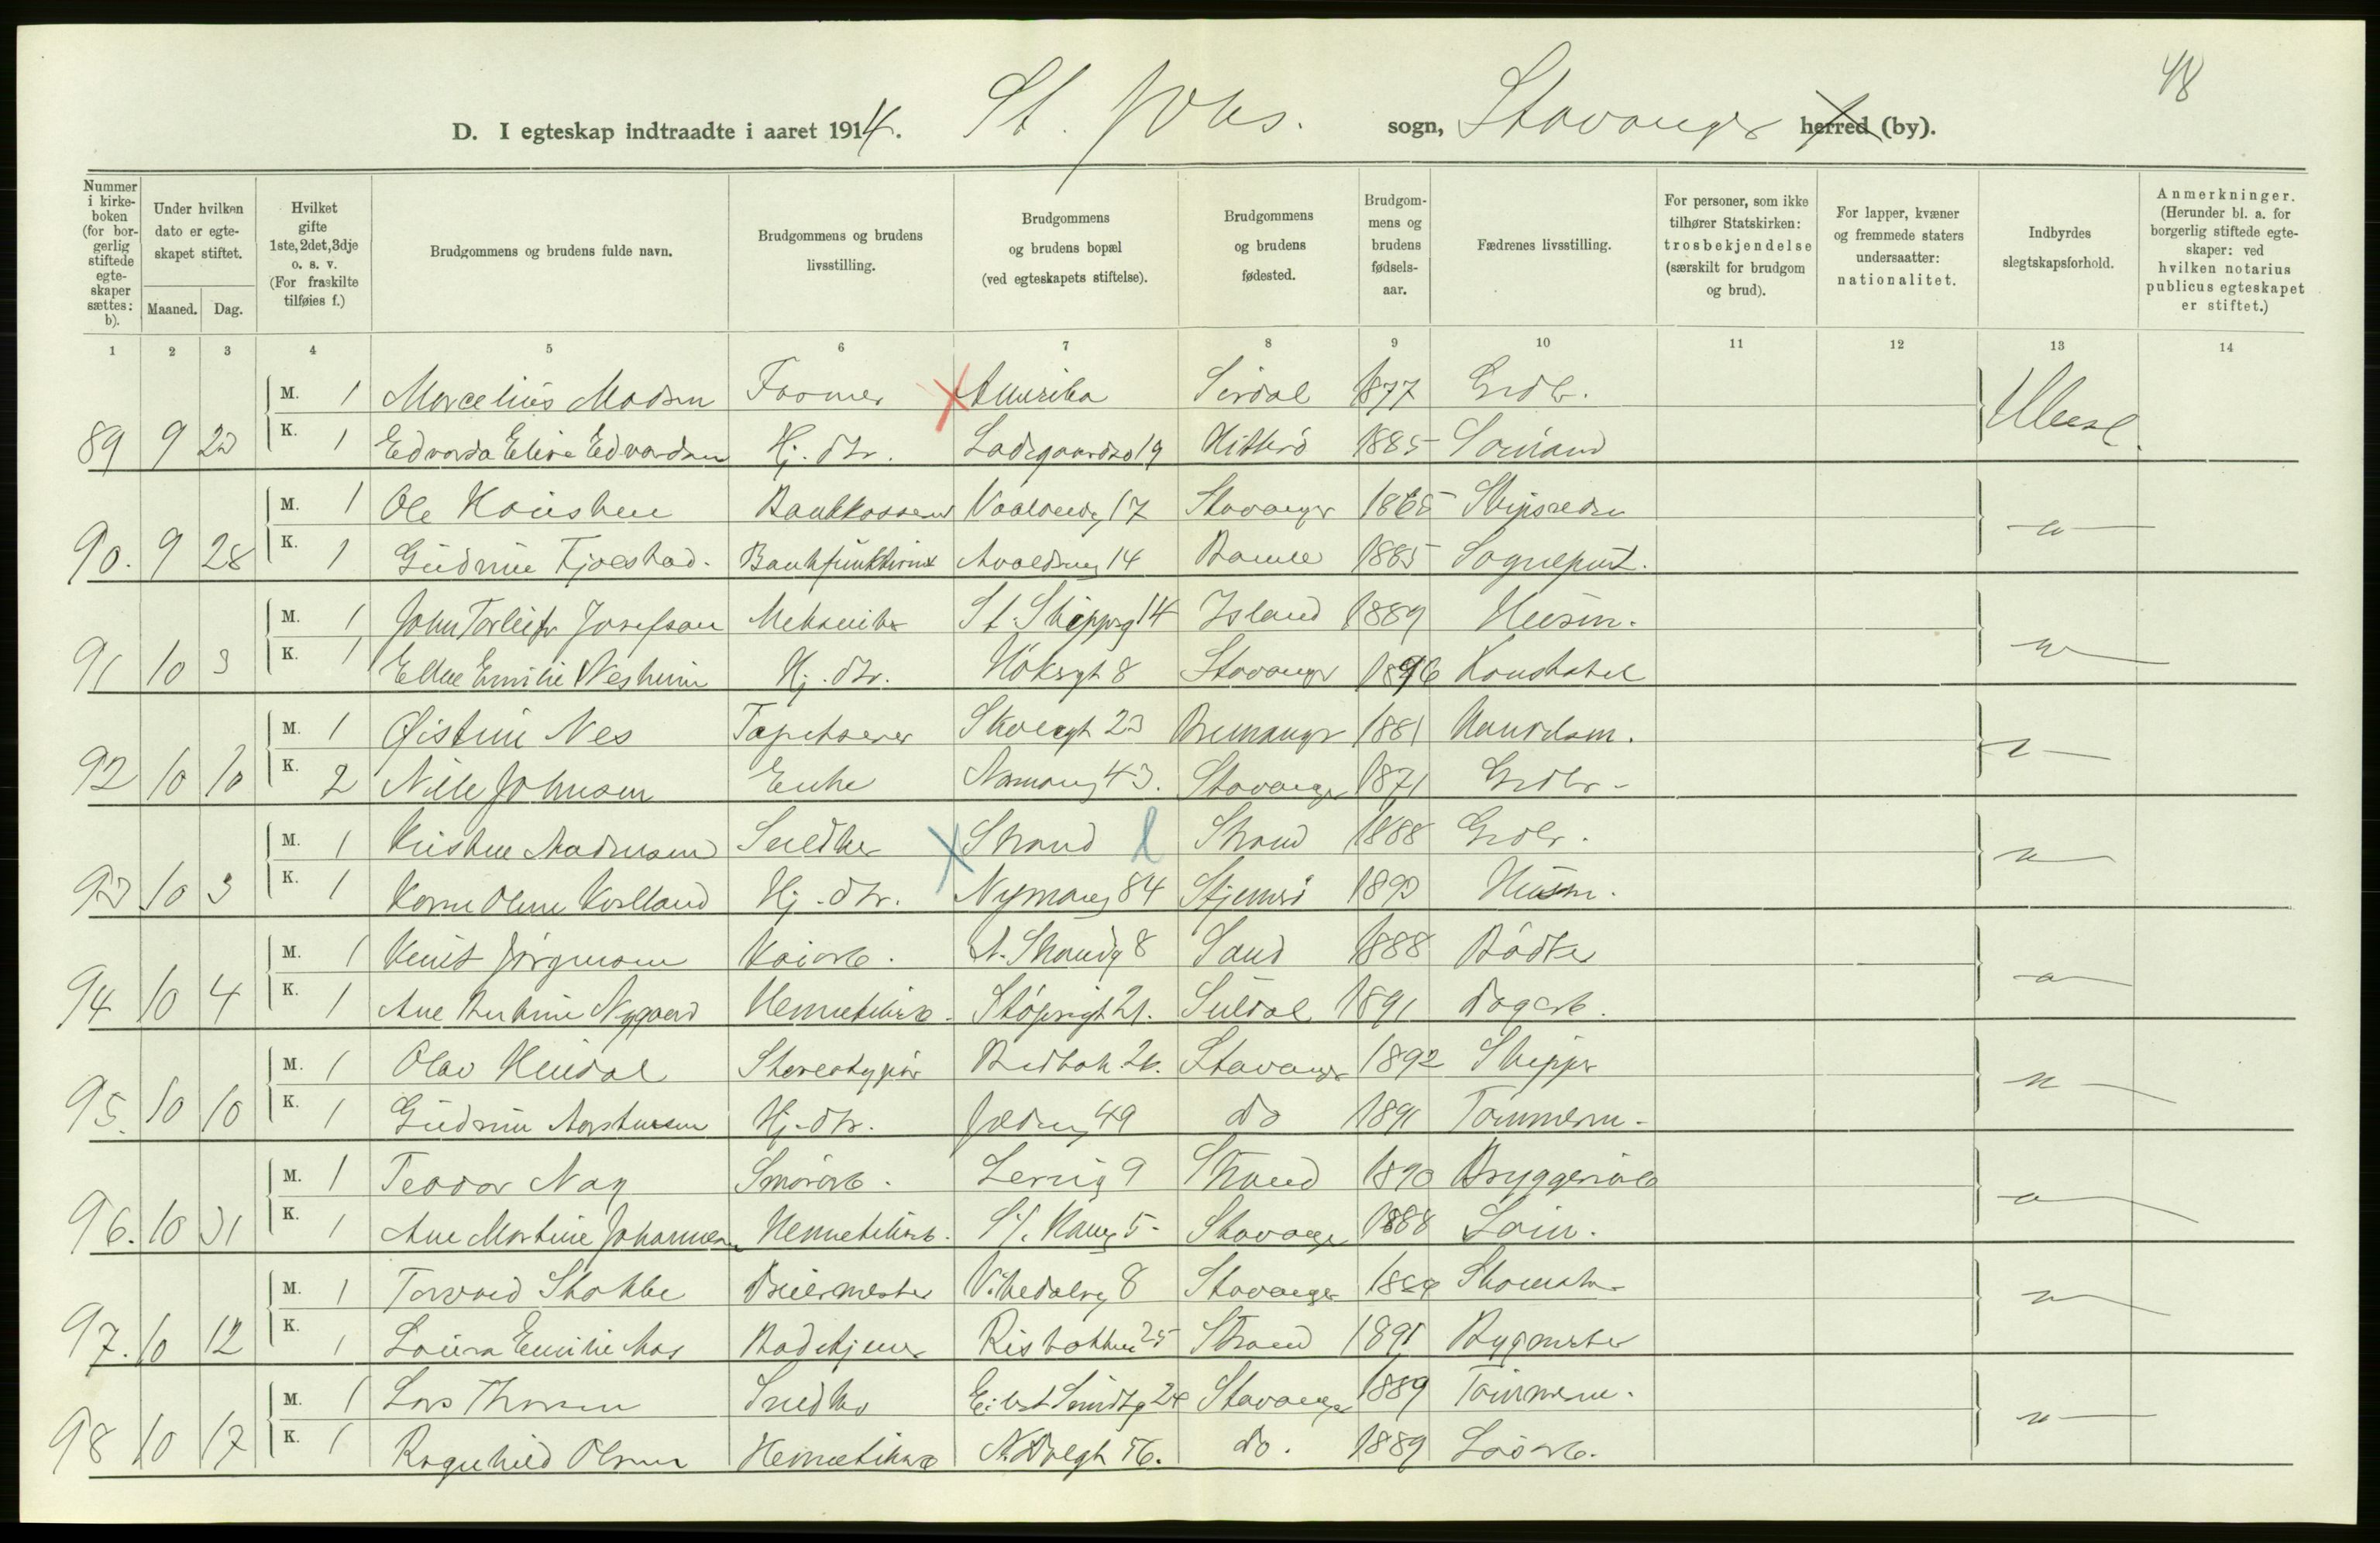 48
D. I egteskap indtraadte i aaret 1914. St. Johs. sogn, Stavanger herred (by).
Nummer i kirke-boken (for bor-gerlig stiftede egte-skaper sættes: b).
Under hvilken dato er egte-skapet stiftet.
Maaned. Dag.
Hvilket gifte 1ste, 2det, 3dje o. s. v. (For fraskilte tilføies f.)
Brudgommens og brudens fulde navn.
Brudgommens og brudens livsstilling.
Brudgommens og brudens bopæl (ved egteskapets stiftelse).
Brudgommens og brudens fødested.
Brudgom-mens og brudens fødsels-aar.
Fædrenes livsstilling.
For personer, som ikke tilhører Statskirken: trosbekjendelse (særskilt for brudgom og brud).
For lapper, kvæner og fremmede staters undersaatter: nationalitet.
Indbyrdes slegtskapsforhold.
Anmerkninger. (Herunder bl. a. for borgerlig stiftede egte-skaper: ved hvilken notarius publicus egteskapet er stiftet.)
1 2 3 4 5 6 7 8 9 10 11 12 13 14
M. 1 Marcelius Madsen Farmer Amerika Sirdal 1877 Grdbr.
89 9 23 K. 1 Edvarda Elise Edvardsen Hj. dtr. Ladegaardsv 19 Hitterö 1885
M. 1 Ole Bankkasserer 17 Stavanger 1865 Skipsreder
90. 9 28 K. 1 Gudrun Tjoestad. Avaldsnesg 14 Bamle 1885 Sogneprest.
M. 1 John Torleifr Josefson Mekaniker St. Skipperg 14 Island 1889 Husm.
91 10 3 K. 1 Ellen Emilie Nesheim Hj. dtr. Höksgt 8 Stavanger 1896 Konstabel
M. 1 Øistein Nes Tapetserer Skolegt 23 Bremanger 1881 Handelsm.
92 10 10 K. 2 Nille Johnsen Enke Normansg 43. Stavanger 1871 Grdbr.
M. 1 Kristen Snedker Strand Strand 1888 Grdbr.
93 10 3 K. 1 Karen Oline Hj. dtr. Nymansg 84 Stjernerö 1893 Husm.
M. 1 Knut Jörgensen Kaiarb. N. Strandg 8 Sand 1888 Bödker
94 10 4 K. 1 Ane Bertine Nygaard Hermetikarb. Stöperigt 21. Suldal 1891 Dagarb.
M. 1 Olav Stereotypör Stavanger 1892 Skipper
95. 10 10 K. 1 Gudrun Hj. dtr. 49 do 1891 Tömmerm.
M. 1 Teodor Nag Lervig 9 Strand 1890 Bryggeriarb
96. 10 31 K. 1 Ane Martine Johannesen Hermetikarb. 5 Stavanger 1888
M. 1 Torvald Stokke Dreiermester Vikedalsg 8 Stavanger Skomaker
97. 10 12 K. 1 Laura Emilie Aas Badetjener Risbakken 25 Strand 1891 Bygmester
M. 1 Lars Thorsen Snedker Eilert Smidtsg 24 Stavanger 1889 Tömmerm.
98 10 17 K. 1 Ragnhild Olsen Hermetikarb 56. do. 1889